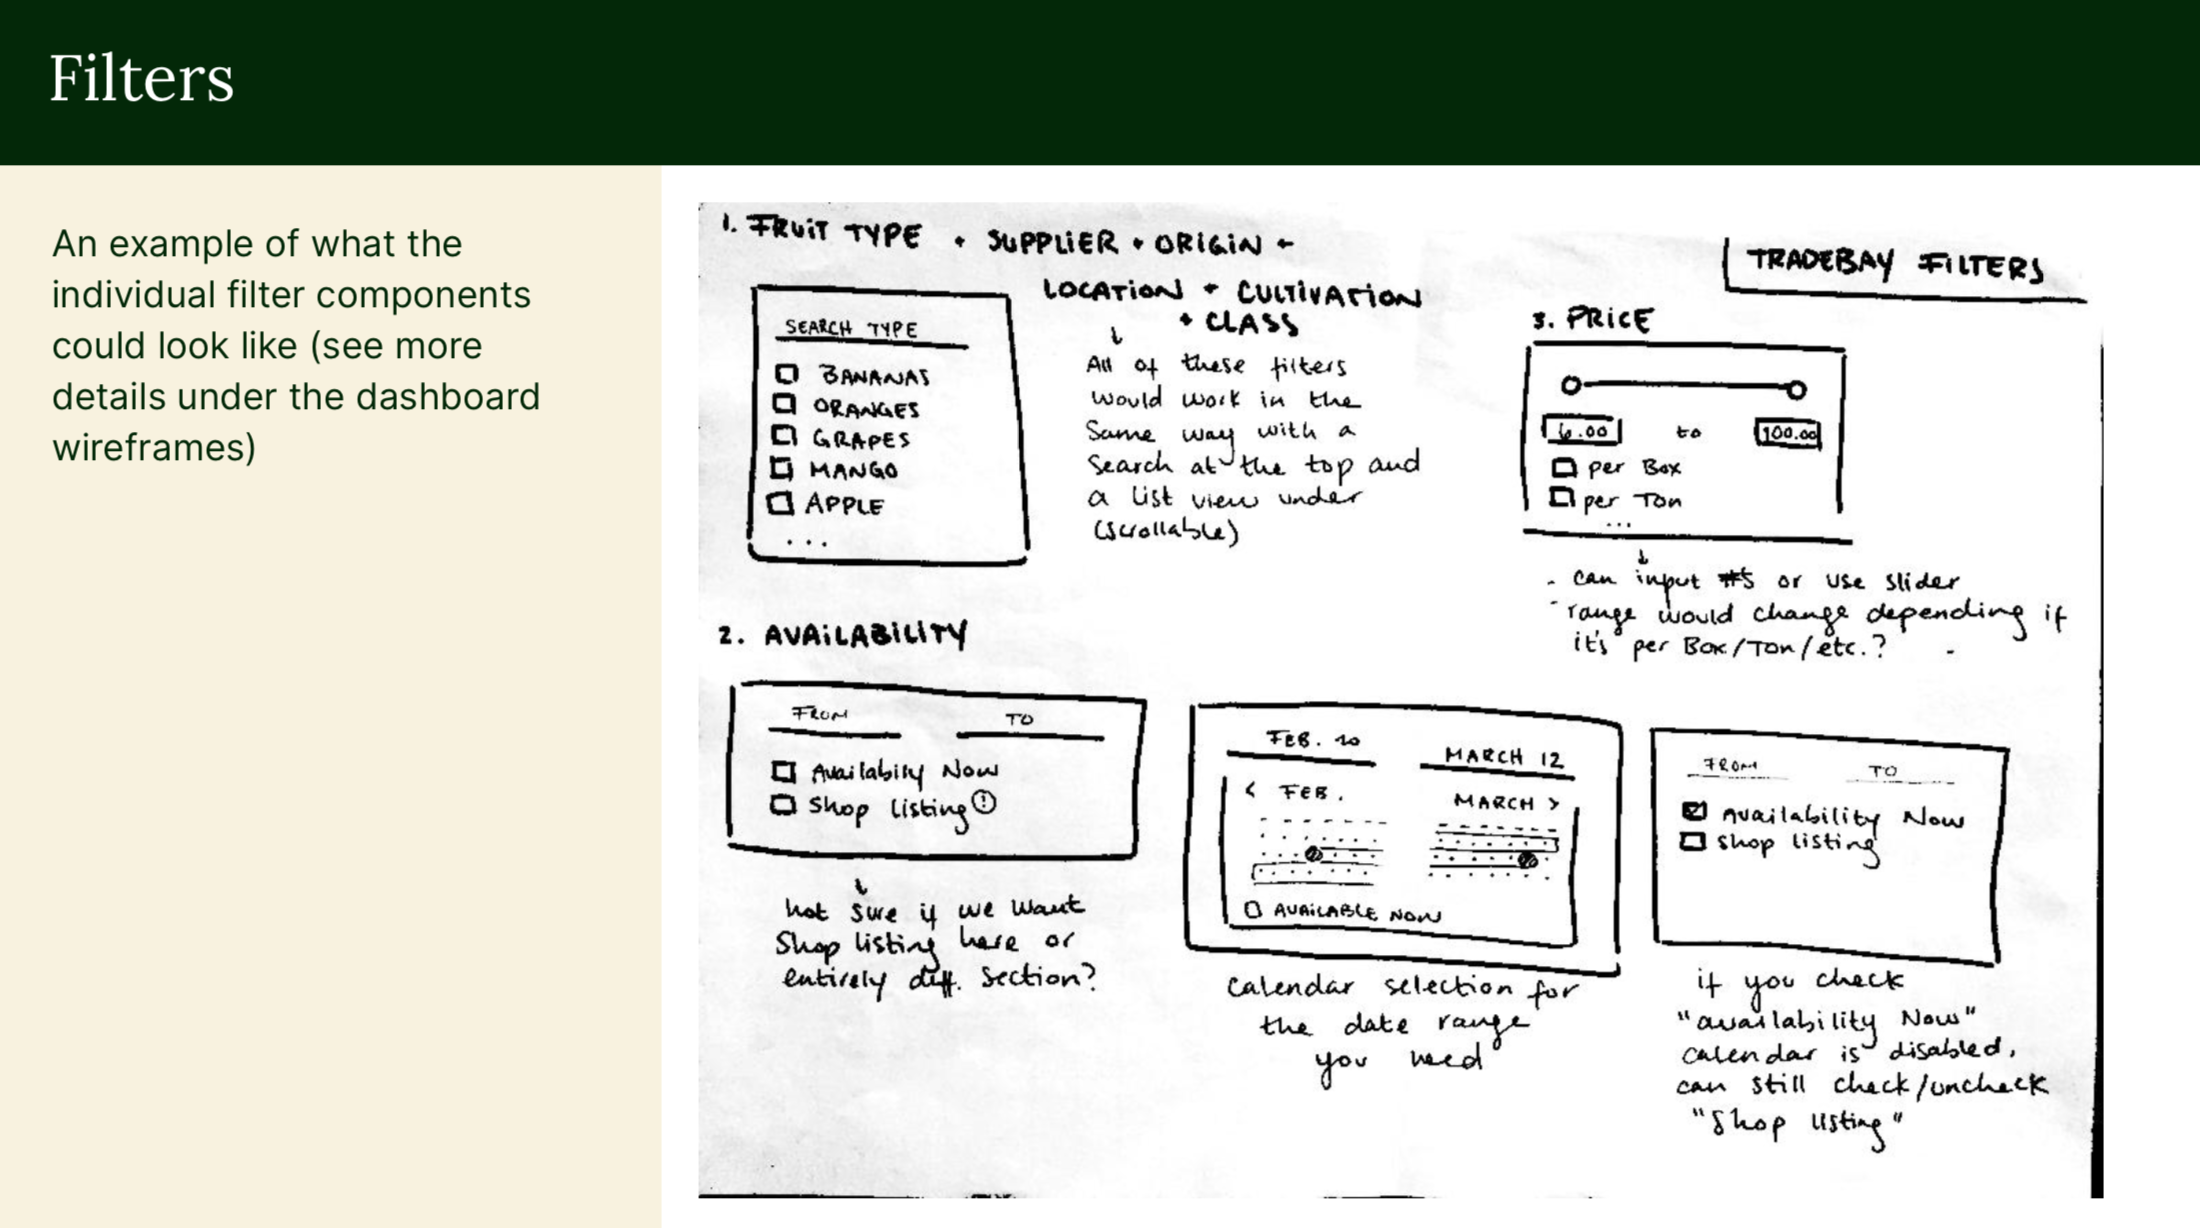 Filters
An example of what the
individual filter components
could look like (see more
details under the dashboard
wireframes)
TRADEBAY FILTERS
1. FRUIT TYPE + SUPPLIER + ORIGIN +
LOCATION + CULTIVATION
+ CLASS
SEARCH TYPE
BANANAS
ORANGES
GRAPES
MANGO
APPLE
...
All of these filters
would work in the
same way with a
search at the top and
a list view under
(scrollable)
3. PRICE
6.00 to 100.00
per Box
per Ton
...
- can input #s or use slider
- range would change depending if
it's per Box/Ton/etc.?
2. AVAILABILITY
FROM TO
Availabily Now
Shop listing !
not sure if we want
Shop listing here or
entirely diff. section?
FEB. 20 MARCH 12
< FEB. MARCH >
AVAILABLE NOW
Calendar selection for
the date range
you need
FROM TO
Availability Now
Shop listing
if you check
"availability Now"
calendar is disabled,
can still check/uncheck
"Shop listing"